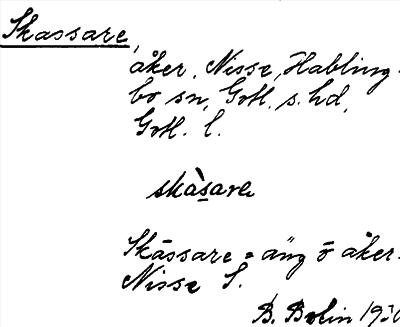 Skassare,
åker, Nisse, Habling-
bo sn, Gotl. s. hd,
Gotl. l.
skàsare
Skässare = äng o åker.
Nisse S.
B. Bolin 1930